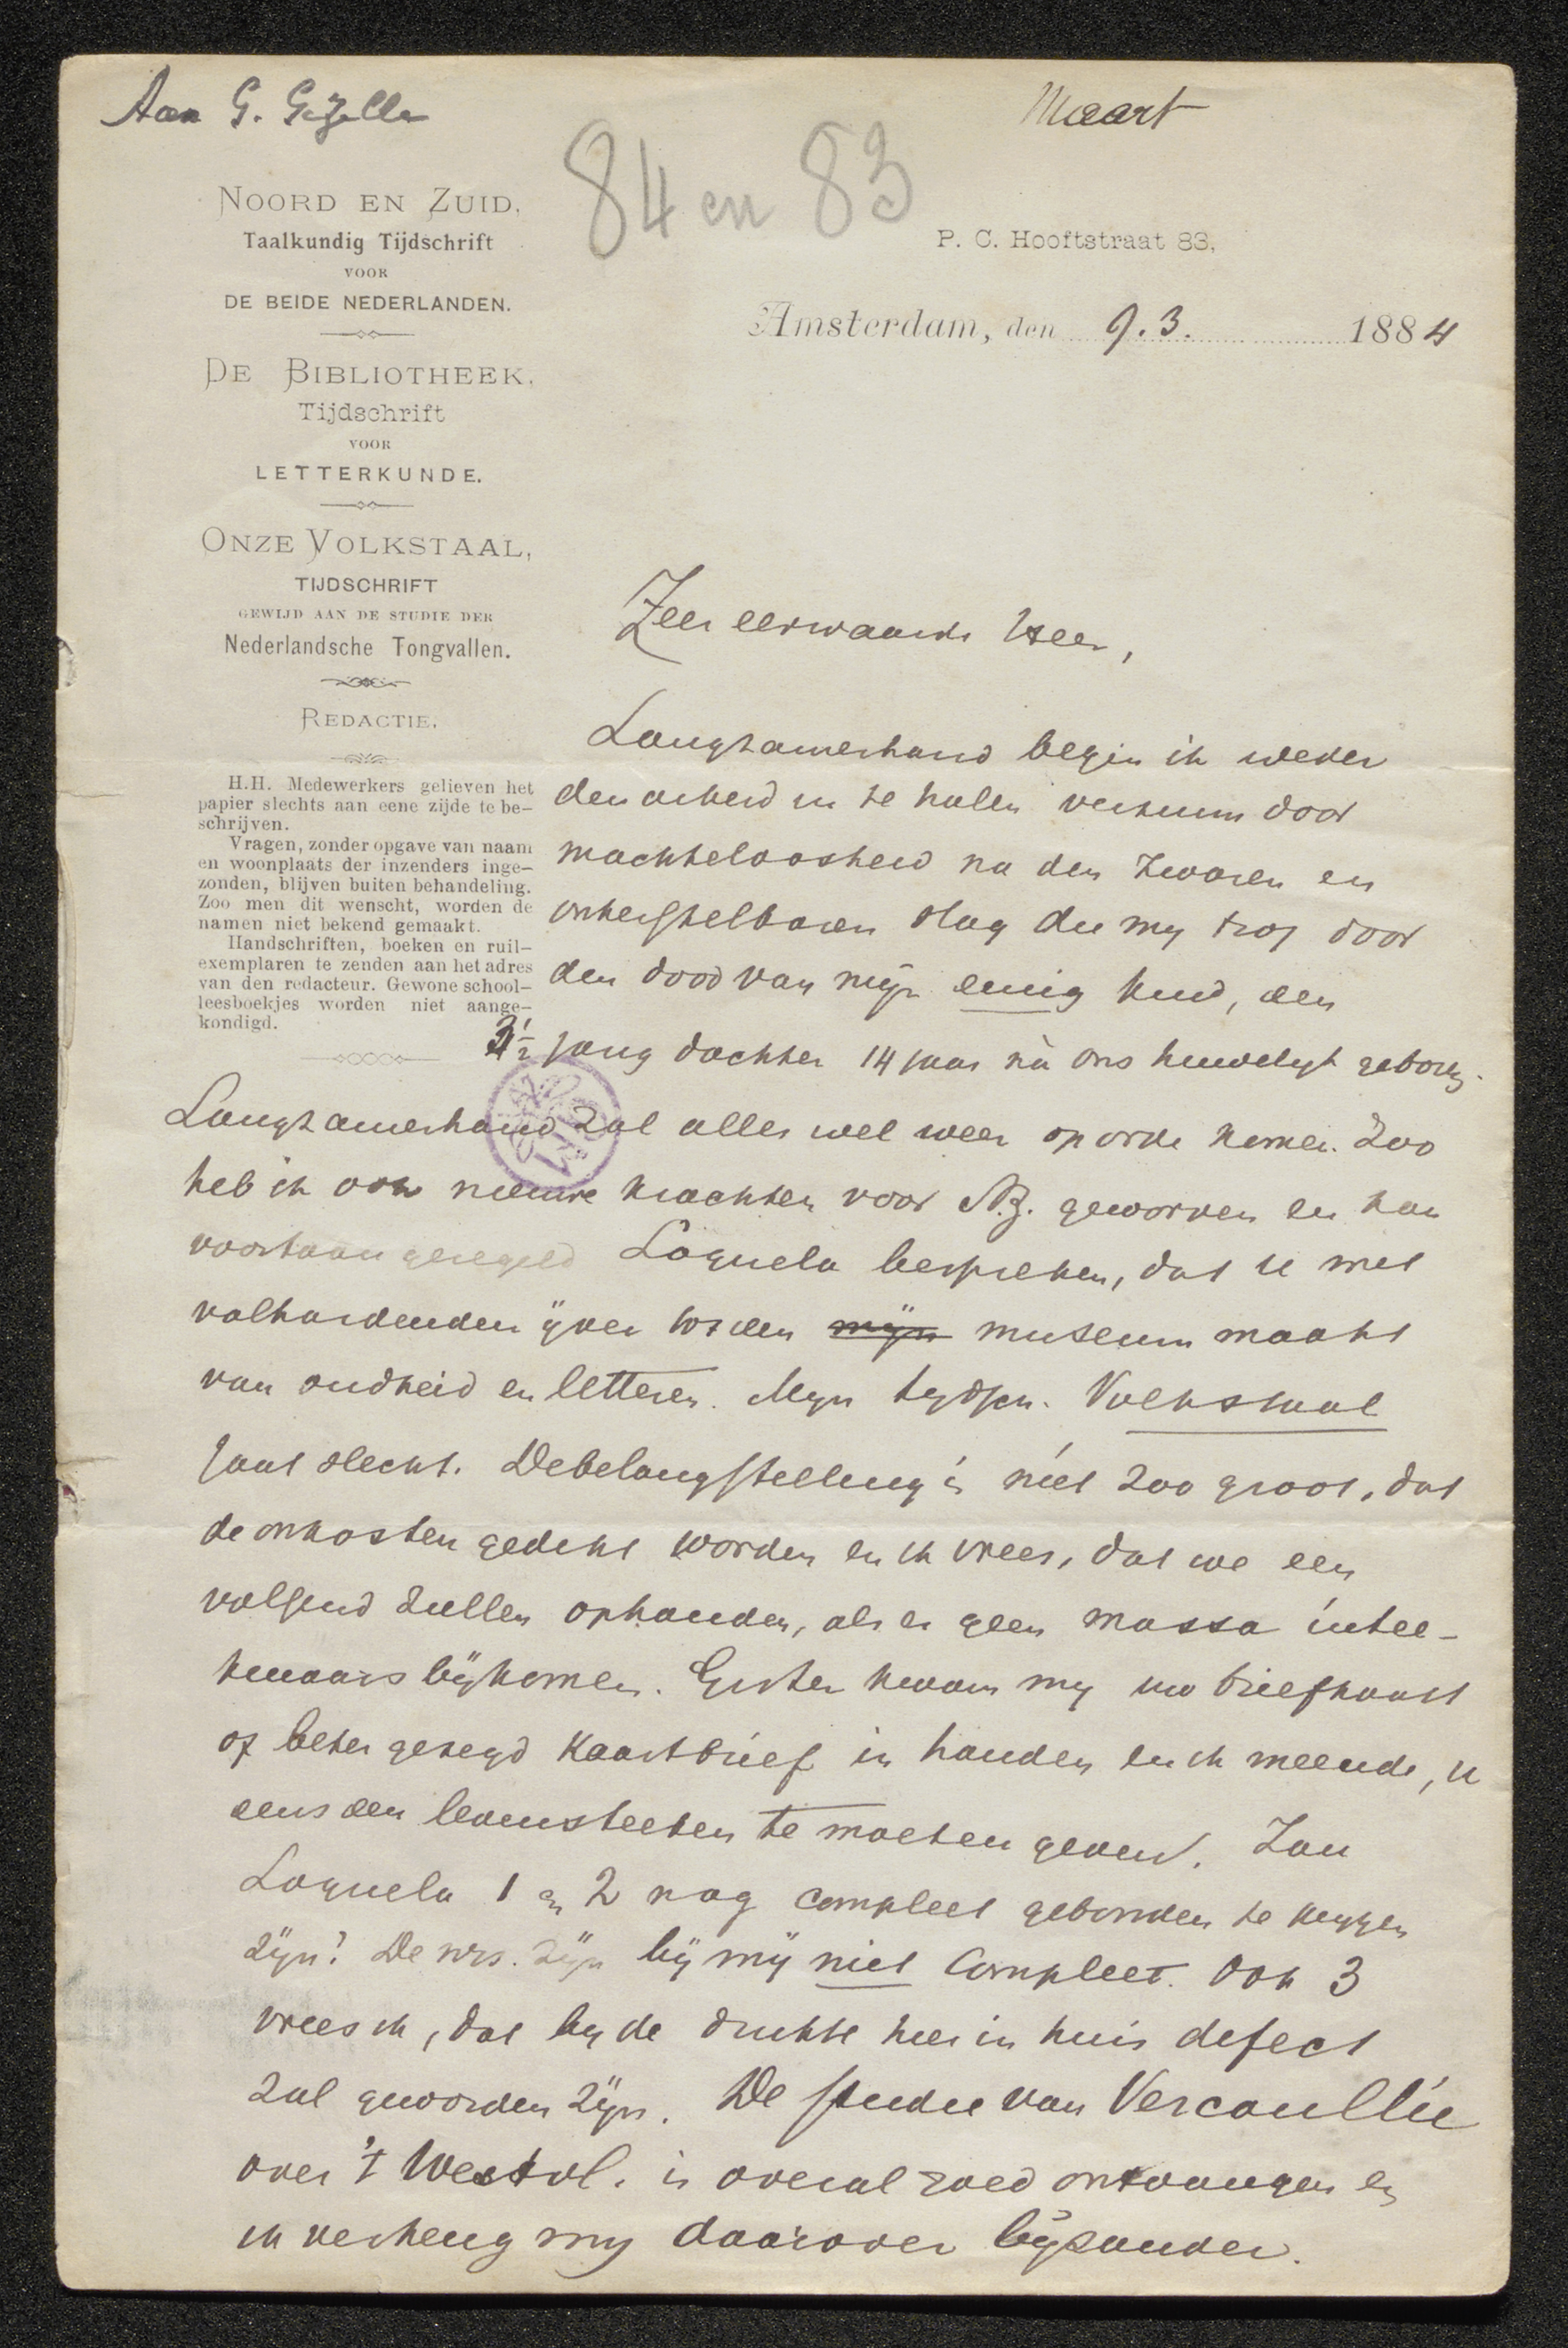 Aan G. Gezelle
Maart
84 en 83
NOORD EN ZUID,
Taalkundig Tijdschrift
VOOR
DE BEIDE NEDERLANDEN.
DE BIBLIOTHEEK,
Tijdschrift
VOOR
LETTERKUNDE.
ONZE VOLKSTAAL,
TIJDSCHRIFT
GEWIJD AAN DE STUDIE DER
Nederlandsche Tongvallen.
REDACTIE.
H.H. Medewerkers gelieven het
papier slechts aan eene zijde te be-
schrijven.
Vragen, zonder opgave van naam
en woonplaats der inzenders inge-
zonden, blijven buiten behandeling.
Zoo men dit wenscht, worden de
namen niet bekend gemaakt.
Handschriften, boeken en ruil-
exemplaren te zenden aan het adres
van den redacteur. Gewone school-
leesboekjes worden niet aange-
kondigd.
P. C. Hooftstraat 83,
Amsterdam, den 9.3. 1884
Zeer eerwaarde Heer,
Langzamerhand begin ik weder
den arbeid in te halen verzuim door
machteloosheid na den zwaren en
onherstelbaren slag die my trof door
den dood van mijn eenig kind, een
3½ jarig dochter 14 jaar nà ons huwelyk geboren.
Langzamerhand zal alles wel weer op orde komen. Zoo
heb ik ook nieuwe krachten voor N.Z. geworven en kan
voortaan geregeld Loquela bespreken, dat u met
volhardenden ijver tot een mijn museum maakt
van oudheid en letteren. Myn tydschr. Volkstaal
gaat slecht. De belangstelling is niet zoo groot, dat
de onkosten gedekt worden en ik vrees, dat we een
volgend zullen ophouden, als er geen massa intee-
kenaars bijkomen. Gister kwam my uw briefkaart
of beter gezegd kaartbrief in handen en ik meende, u
eens een levensteeken te moeten geven. Zou
Loquela 1 en 2 nog compleet gebonden te krygen
zijn? De nrs. zijn bij mij niet compleet. Ook 3
vrees ik, dat by de drukte hier in huis defect
zal geworden zijn. De studie van Vercoullie
over 't Westvl. is overal goed ontvangen en
ik verheug my daarover bijzonder.